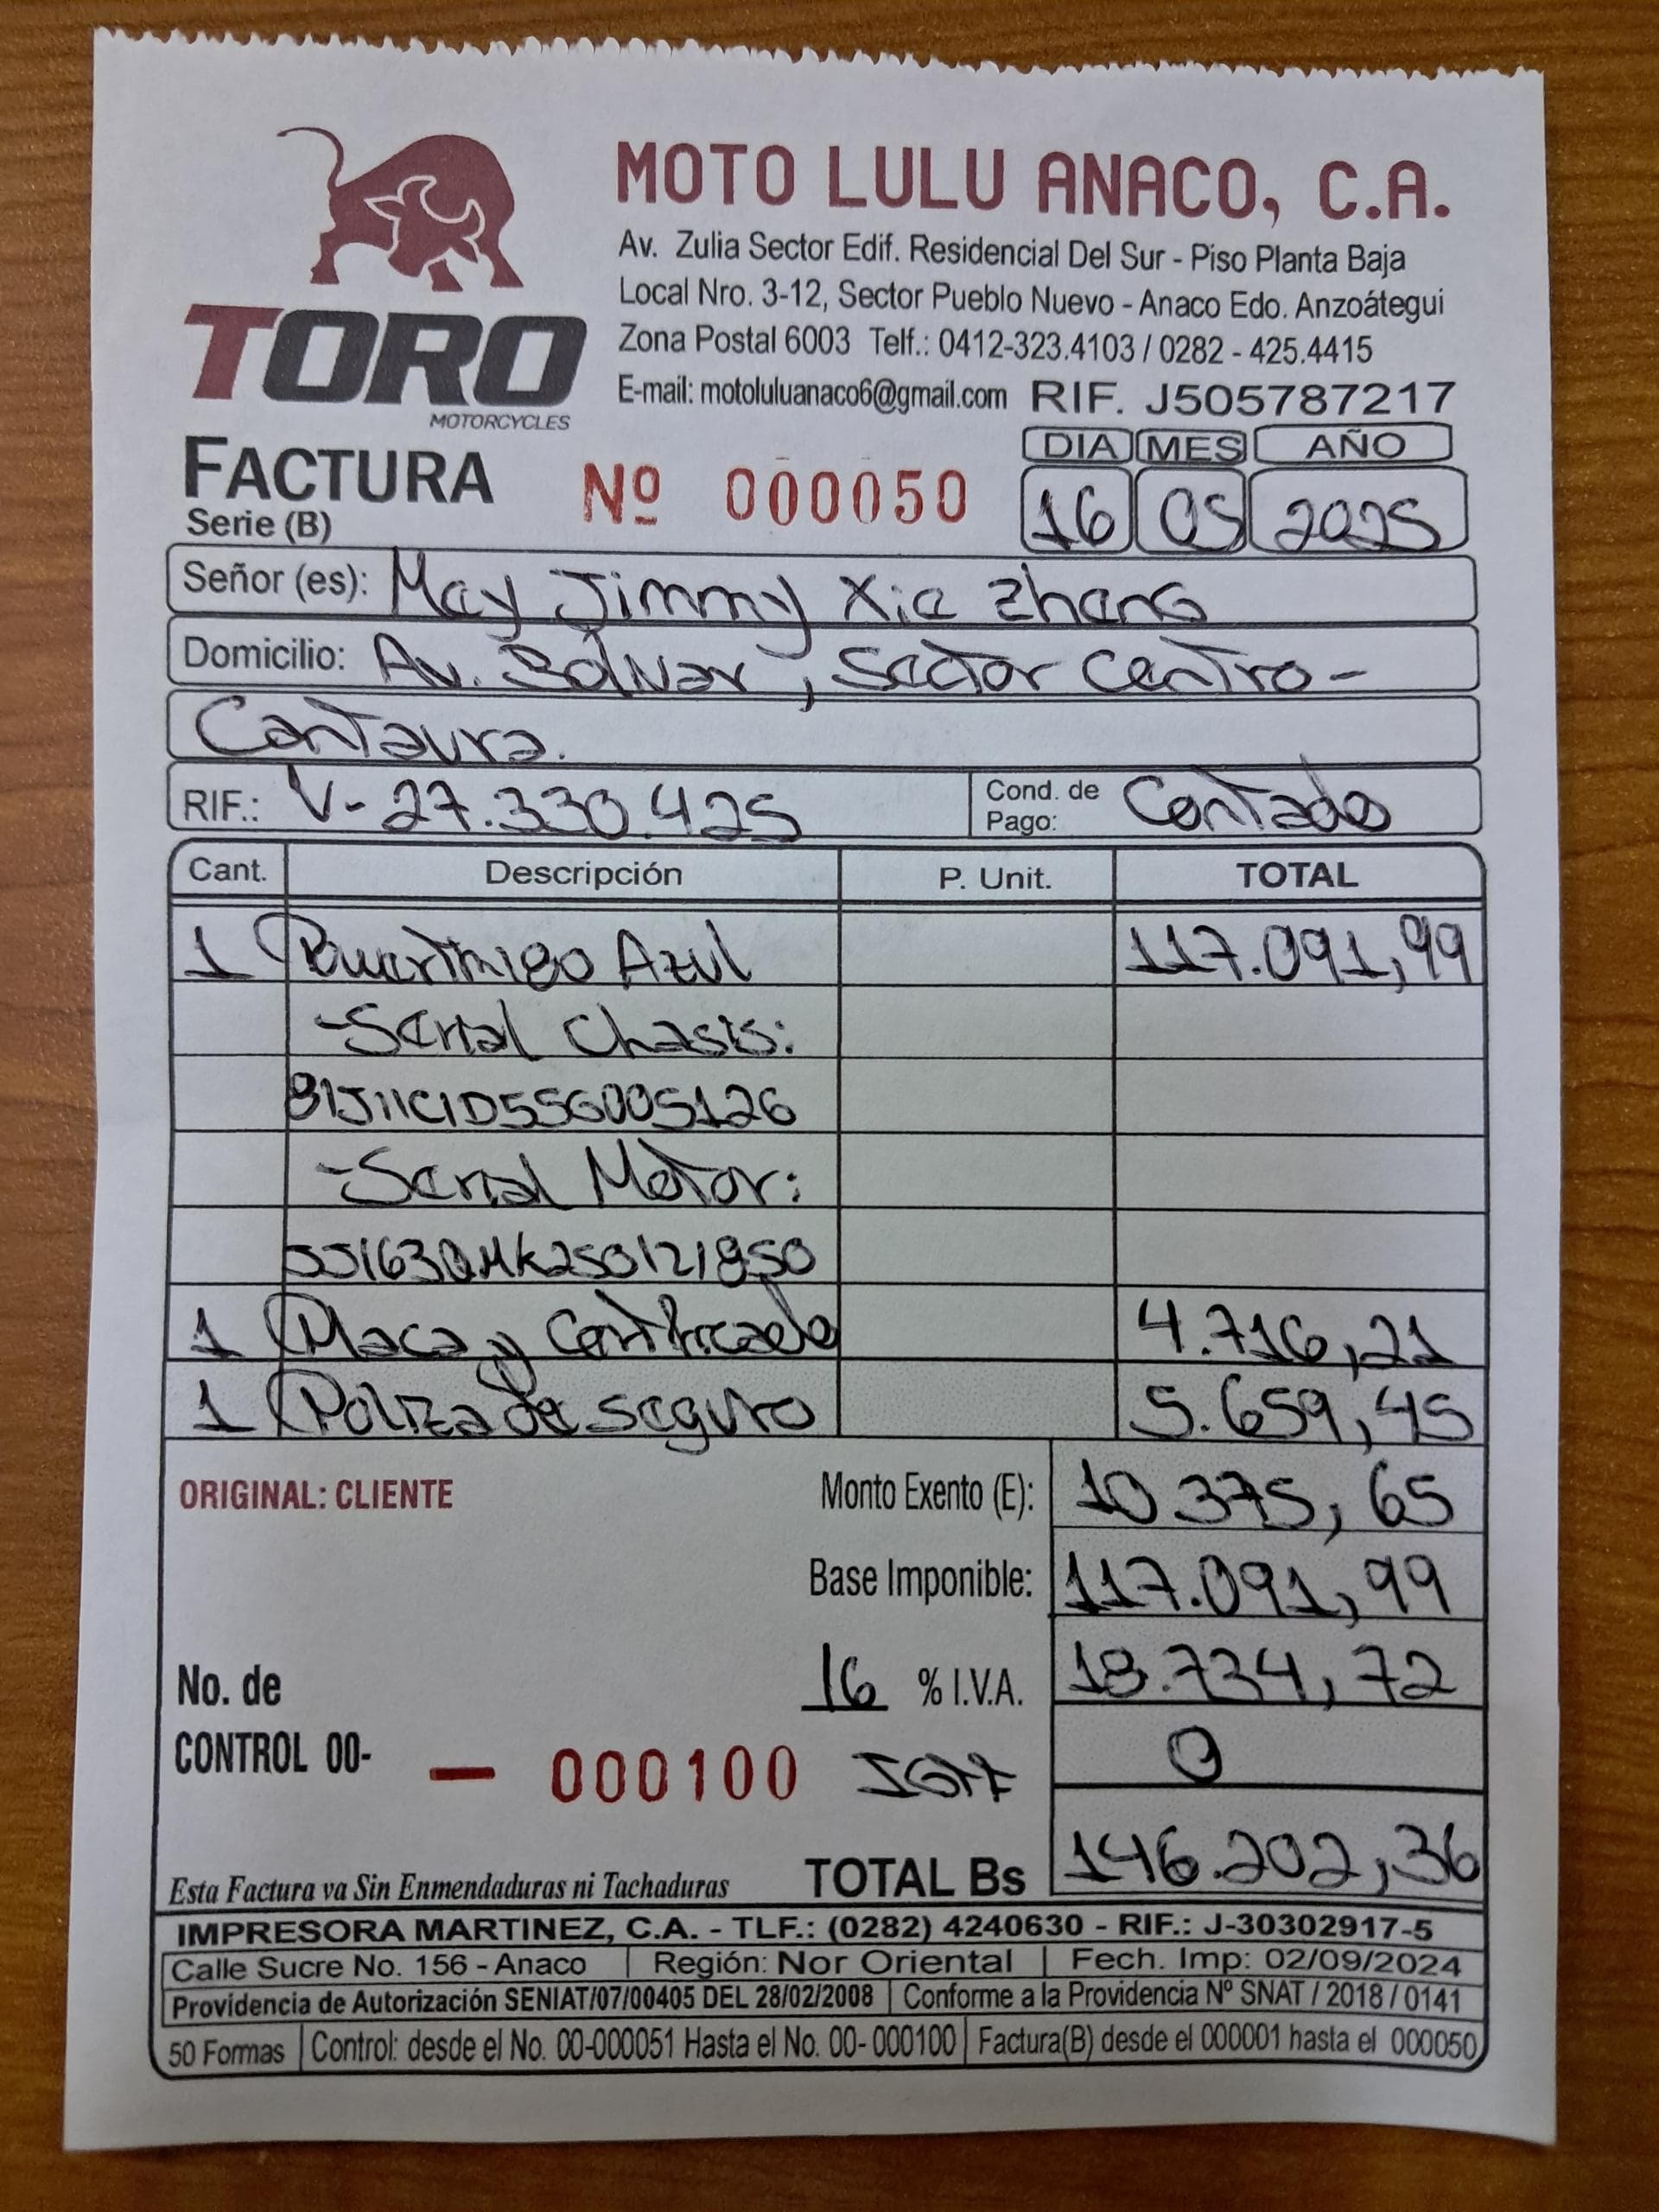 MOTO LULU ANACO, C.A.
Av. Zulia Sector Edif. Residencial Del Sur - Piso Planta Baja
Local Nro. 3-12, Sector Pueblo Nuevo - Anaco Edo. Anzoátegui
Zona Postal 6003 Telf.: 0412-323.4103 / 0282 - 425.4415
E-mail: motoluluanaco6@gmail.com RIF. J505787217
TORO
MOTORCYCLES
FACTURA Nº 000050
Serie (B)
DIA MES AÑO
16 05 2025
Señor (es): May Jimmy Xie Zheng
Domicilio: Av. Bolivar, Sector Centro -
Cantaura.
RIF.: V-27.330.425 Cond. de Pago: Contado
Cant. Descripción P. Unit. TOTAL
1 Azul 117.091,99
-Serial Chasis:
-Serial Motor:
1 Placa y Certificado 4.716,21
1 Poliza de seguro 5.659,45
ORIGINAL: CLIENTE Monto Exento (E): 10.375,65
Base Imponible: 117.091,99
16 % I.V.A. 18.734,72
No. de
CONTROL 00- — 000100 IGTF 0
Esta Factura va Sin Enmendaduras ni Tachaduras TOTAL Bs 146.202,36
IMPRESORA MARTINEZ, C.A. - TLF.: (0282) 4240630 - RIF.: J-30302917-5
Calle Sucre No. 156 - Anaco Región: Nor Oriental Fech. Imp: 02/09/2024
Providencia de Autorización SENIAT/07/00405 DEL 28/02/2008 Conforme a la Providencia Nº SNAT / 2018 / 0141
50 Formas Control: desde el No. 00-000051 Hasta el No. 00- 000100 Factura(B) desde el 000001 hasta el 000050